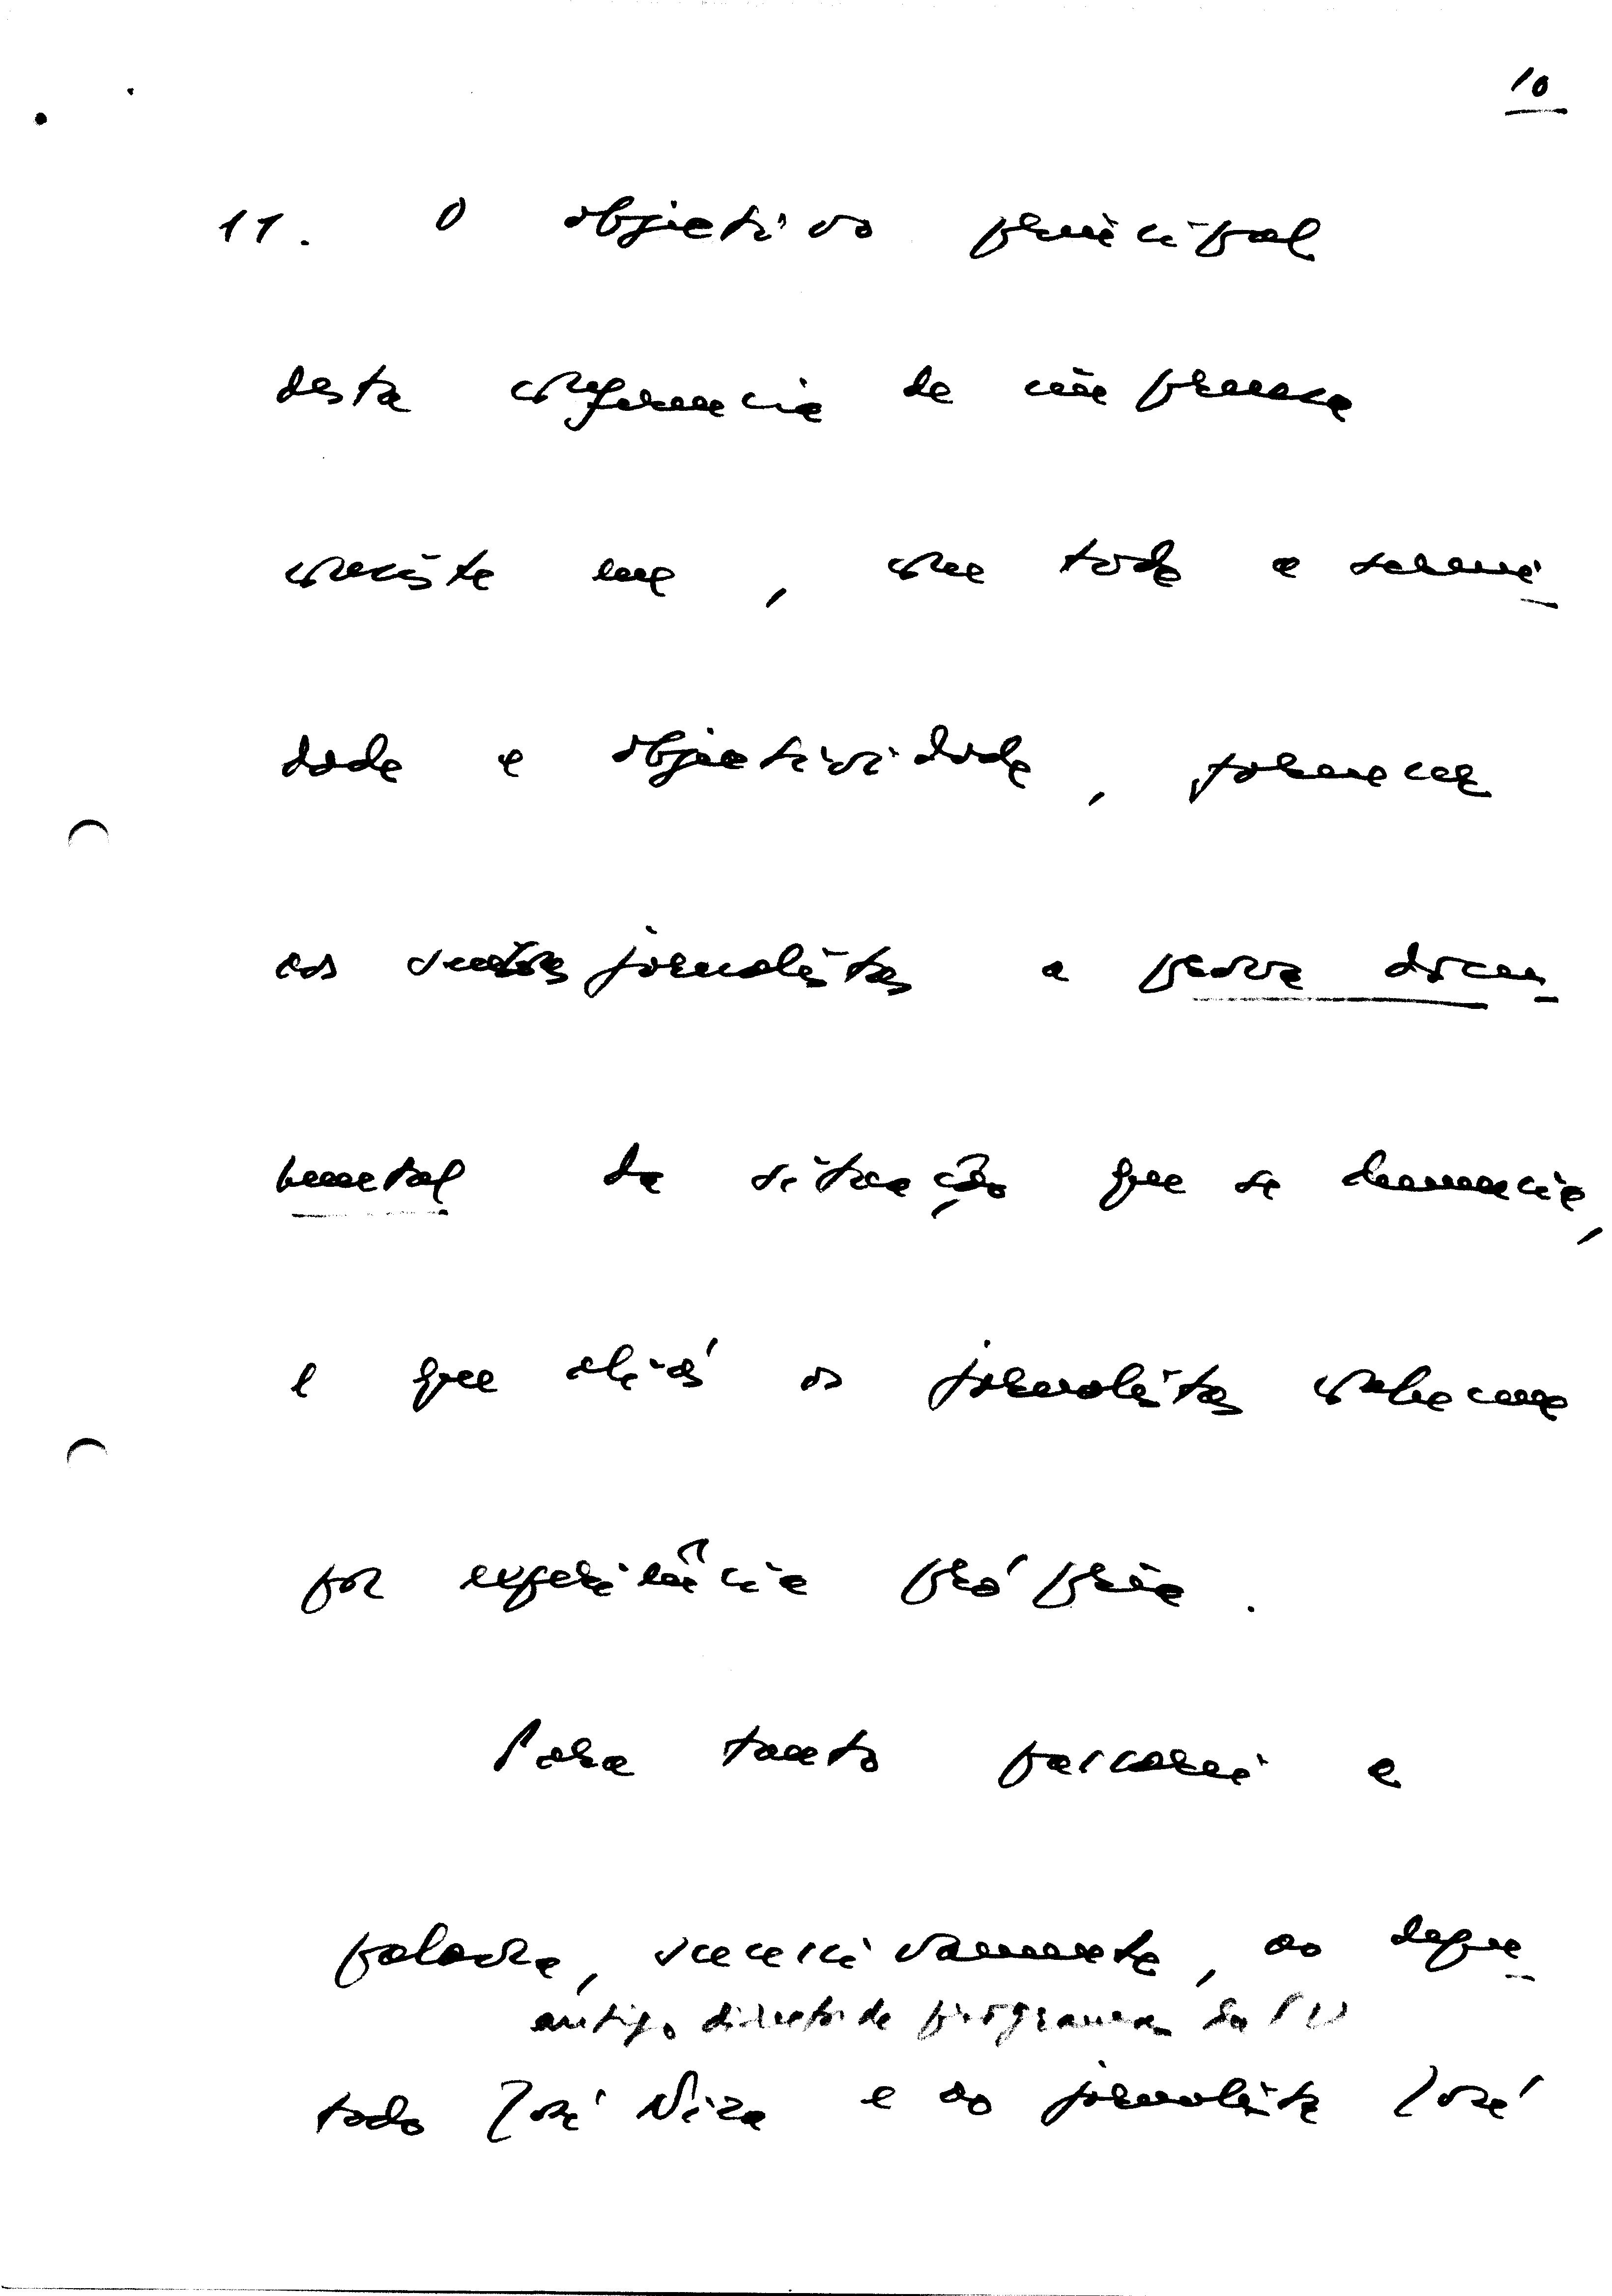 10
11. O objectivo principal
desta conferencia de imprensa
consiste em, com toda a sereni-
dade e objectividade, fornecer
aos senhores jornalistas a prova docu-
mental da situação que se denuncia,
e que aliás os jornalistas conhecem
por experiência própria.
Para tanto passarei a
palavra, sucessivamente, ao depu-
antigo director de programas da TV
tado José Niza e ao jornalista José